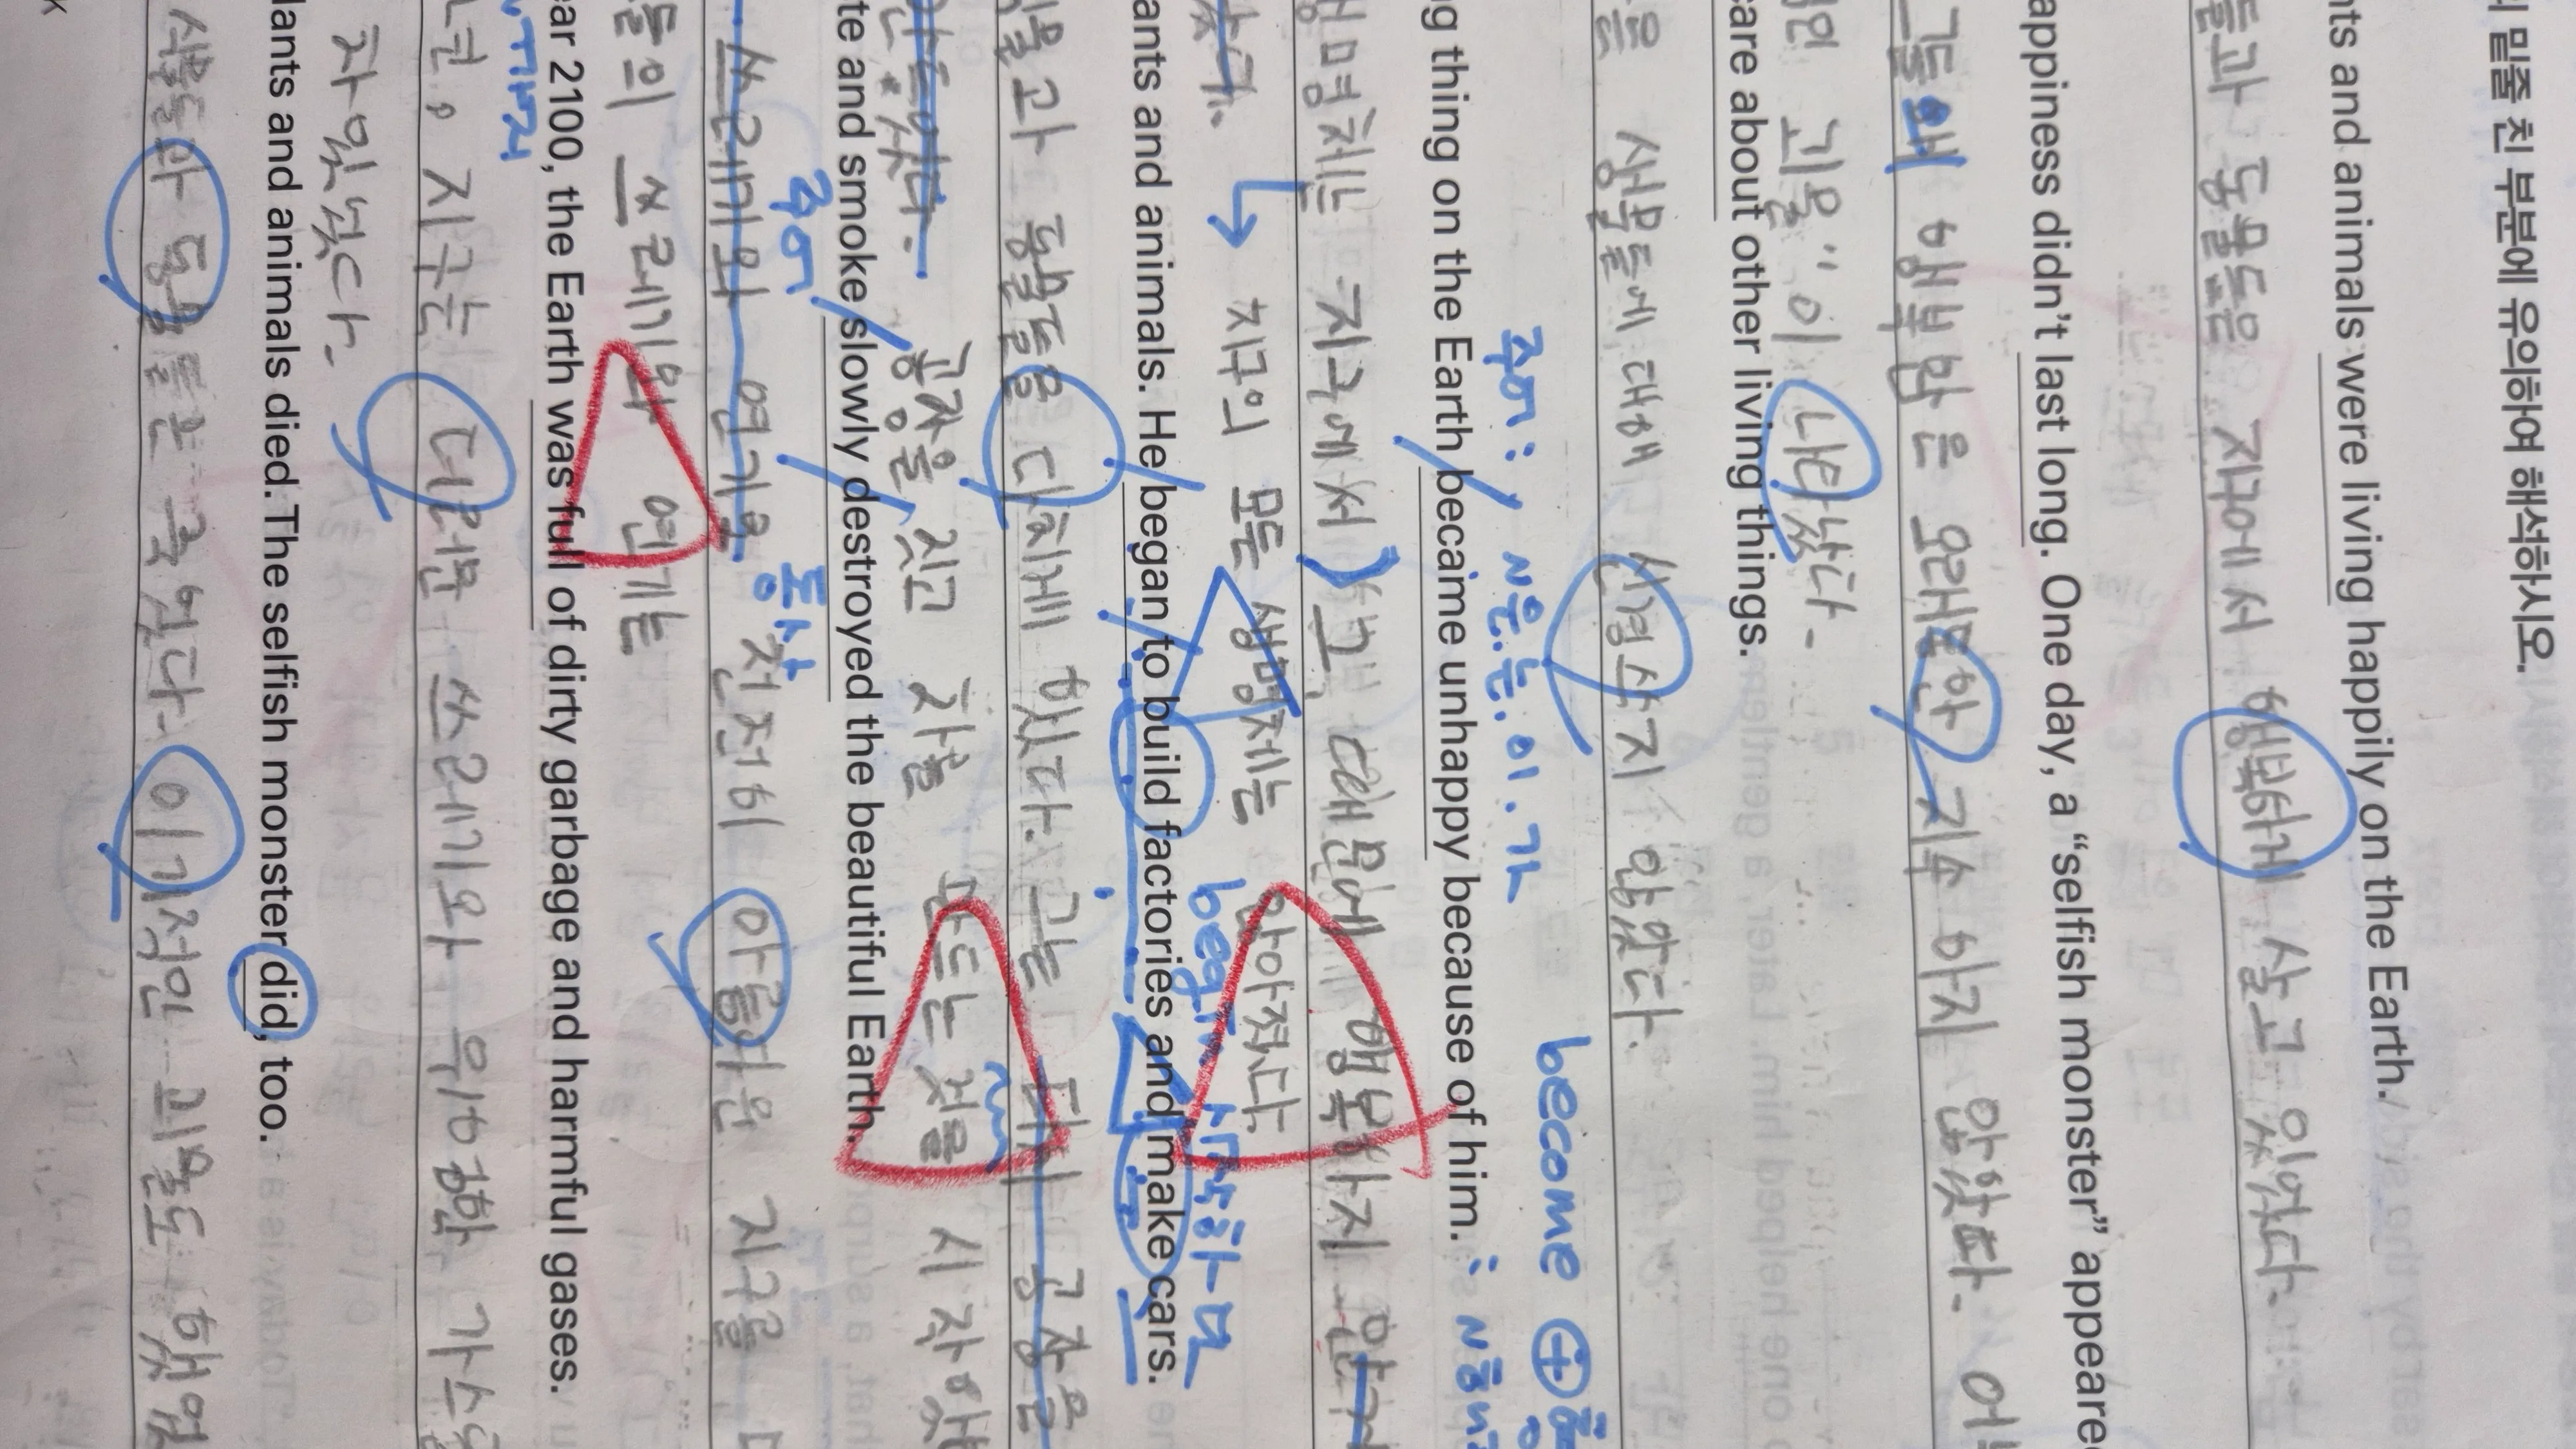 밑줄 친 부분에 유의하여 해석하시오.
nts and animals were living happily on the Earth.
들과 동물들은 지구에서 행복하게 살고 있었다.
appiness didn't last long. One day, a "selfish monster" appeared
그들의 행복함은 오래동안 지속 하지 않았다. 어
적인 괴물"이 나타났다.
care about other living things.
은 생물들에 대해 신경쓰지 않았다.
주어: ~은.는.이.가 become ⊕
ng thing on the Earth became unhappy because of him.
생명체는 지구에서 그 때문에 행복하지 않
았다. → 지구의 모든 생명체는 안아졌다.
begin 시작하다
ants and animals. He began to build factories and make cars.
식물과 동물들을 다치게 했다. 그는 공장을
공장을 짓고 차를 만드는 것을 시작했
te and smoke slowly destroyed the beautiful Earth.
주어 동사
쓰레기와 연기로 천천히 아름다운 지구를
들의 쓰레기와 연기는
ear 2100, the Earth was full of dirty garbage and harmful gases.
지구는 더러운 쓰레기와 유해한 가스
차있었다.
lants and animals died. The selfish monster did, too.
식물들과 동물들은 죽었다. 이기적인 괴물도 했었